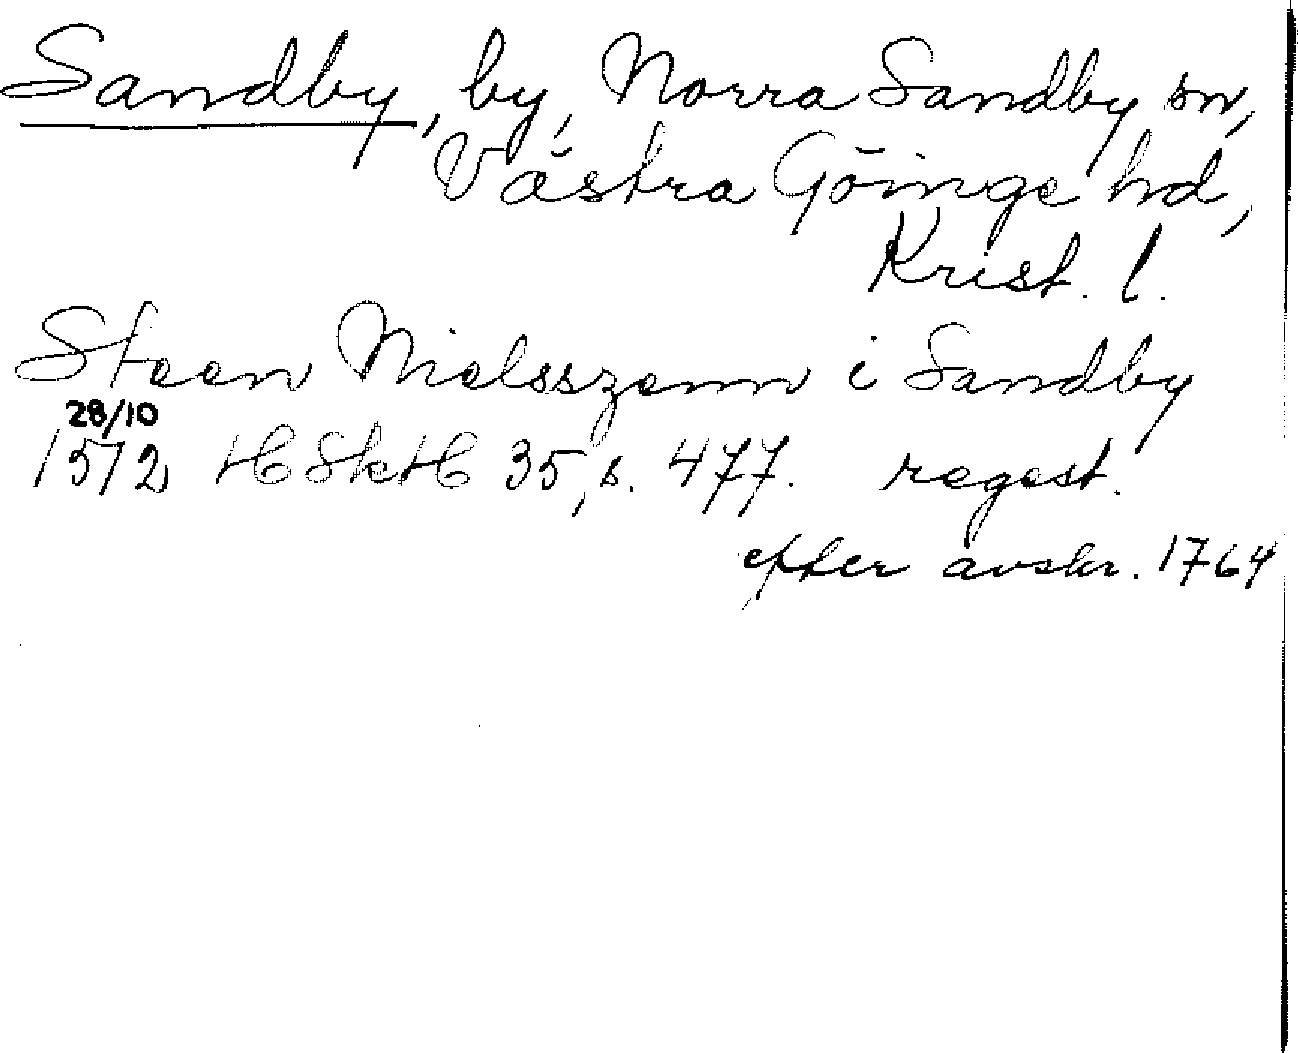 Sandby, by, Norra Sandby sn,
Västra Göinge hd,
Krist. l.
Steen Nielsszenn i Sandby
28/10
1572 HSkH 35, s. 477. regest.
efter avskr. 1764